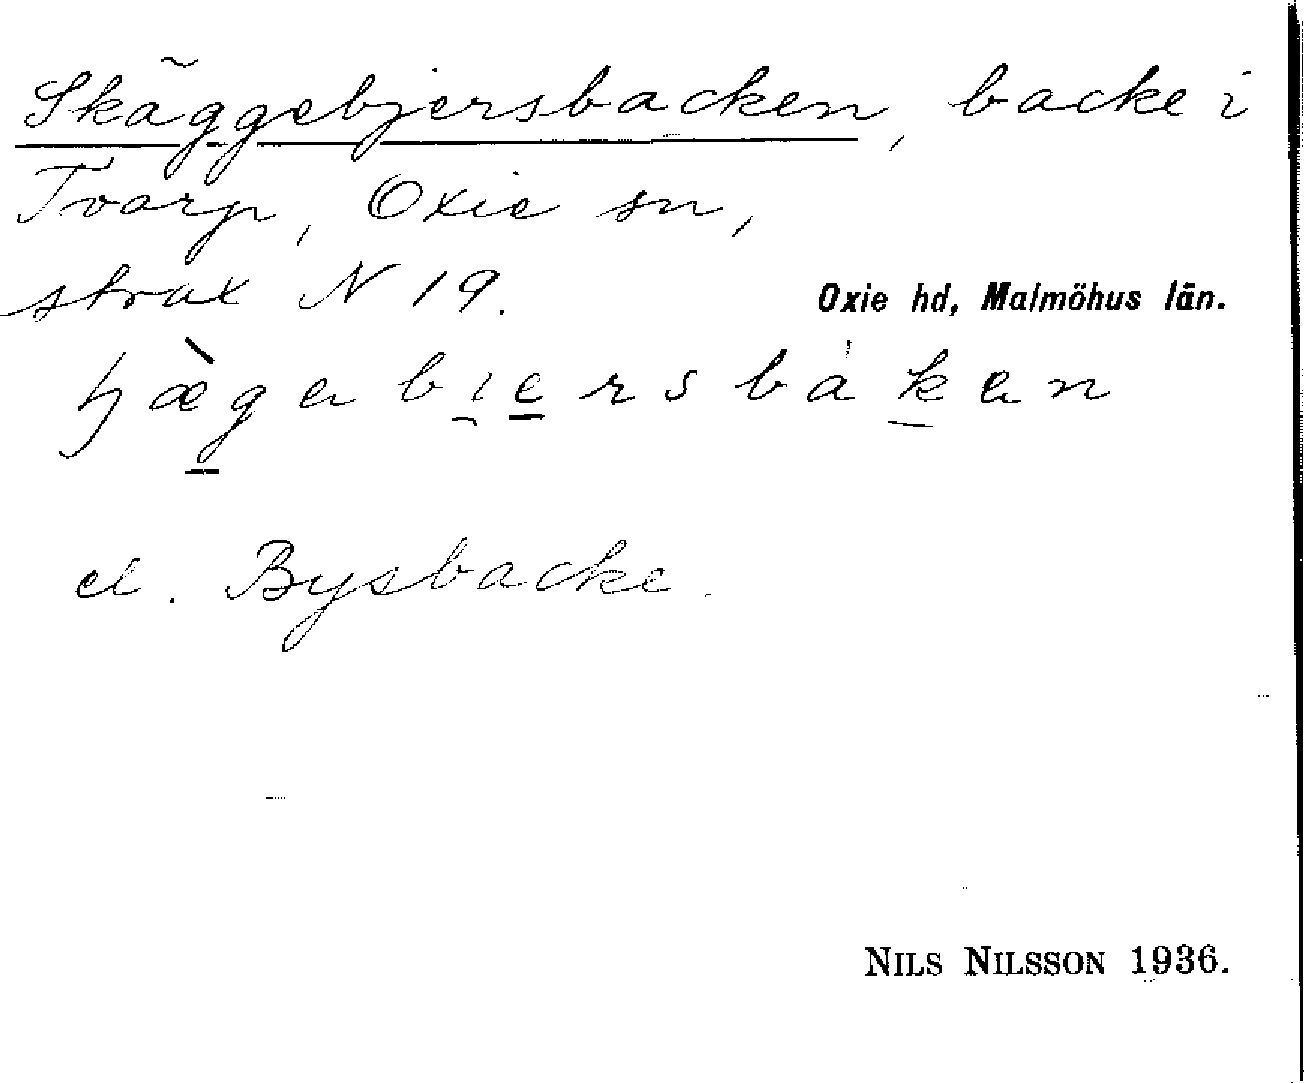 Skäggebjersbacken, backe i
Tvarp, Oxie sn,
strax N 19.
Oxie hd, Malmöhus län.
el. Bysbacke.
NILS NILSSON 1936.